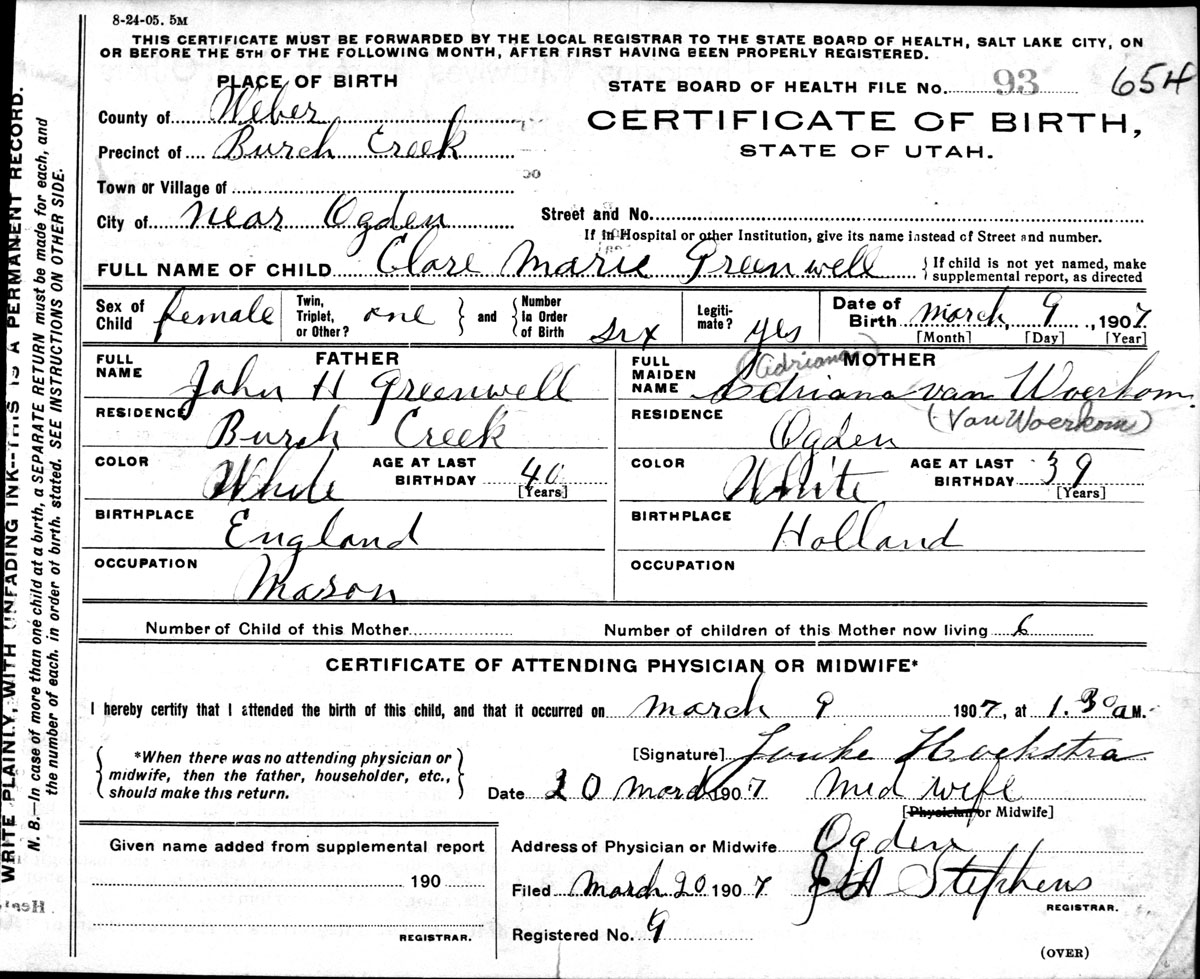 8-24-05. 5M
THIS CERTIFICATE MUST BE FORWARDED BY THE LOCAL REGISTRAR TO THE STATE BOARD OF HEALTH, SALT LAKE CITY, ON
OR BEFORE THE 5TH OF THE FOLLOWING MONTH, AFTER FIRST HAVING BEEN PROPERLY REGISTERED.
PLACE OF BIRTH
STATE BOARD OF HEALTH FILE No. 93 654
County of Weber
CERTIFICATE OF BIRTH,
Precinct of Burch Creek
STATE OF UTAH.
Town or Village of
City of near Ogden Street and No.
If in Hospital or other Institution, give its name instead of Street and number.
FULL NAME OF CHILD Clare Marie Greenwell If child is not yet named, make
supplemental report, as directed
Sex of Child female Twin, Triplet, or Other? one and Number In Order of Birth six Legiti- mate? yes Date of Birth March 9, 1907
[Month] [Day] [Year]
FATHER
FULL NAME John H Greenwell
RESIDENCE Burch Creek
COLOR White AGE AT LAST BIRTHDAY 40 [Years]
BIRTHPLACE England
OCCUPATION Mason
MOTHER
(Adriana)
FULL MAIDEN NAME Adriana van Woerkom
RESIDENCE Ogden (Van Woerkom)
COLOR White AGE AT LAST BIRTHDAY 39 [Years]
BIRTHPLACE Holland
OCCUPATION
Number of Child of this Mother Number of children of this Mother now living 6
CERTIFICATE OF ATTENDING PHYSICIAN OR MIDWIFE*
I hereby certify that I attended the birth of this child, and that it occurred on March 9 1907, at 1.30 a M.
*When there was no attending physician or
midwife, then the father, householder, etc.,
should make this return.
[Signature] Jouke Hoekstra
Date 20 March 1907 Mid wife
[Physician or Midwife]
Given name added from supplemental report
190
REGISTRAR.
Address of Physician or Midwife Ogden
Filed March 20 1907 Stephens
REGISTRAR.
Registered No. 9
(OVER)
WRITE PLAINLY, WITH UNFADING INK--THIS IS A PERMANENT RECORD.
N. B.—In case of more than one child at a birth, a SEPARATE RETURN must be made for each, and
the number of each, in order of birth, stated. SEE INSTRUCTIONS ON OTHER SIDE.